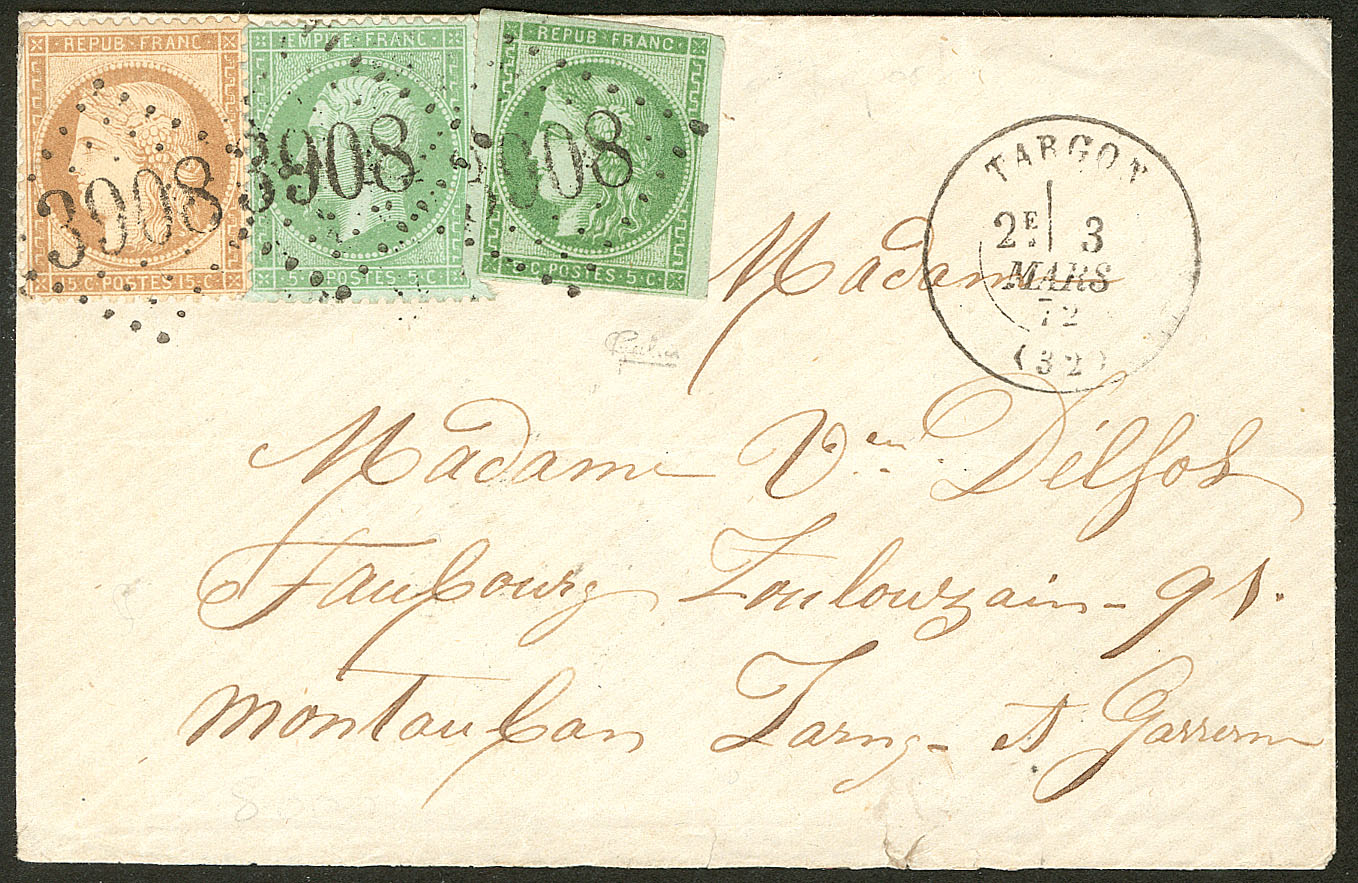 REPUB FRANC
EMPIRE FRANC
REPUB FRANC
3908
3908
3908
15 C POSTES 15 C
5 C POSTES 5 C
5 C POSTES 5 C
TARGON
2E 3
MARS
72
(32)
Madame
Madame Vve Délfos
Faubourg Toulouzain - 91.
Montauban Tarn - et Garronne